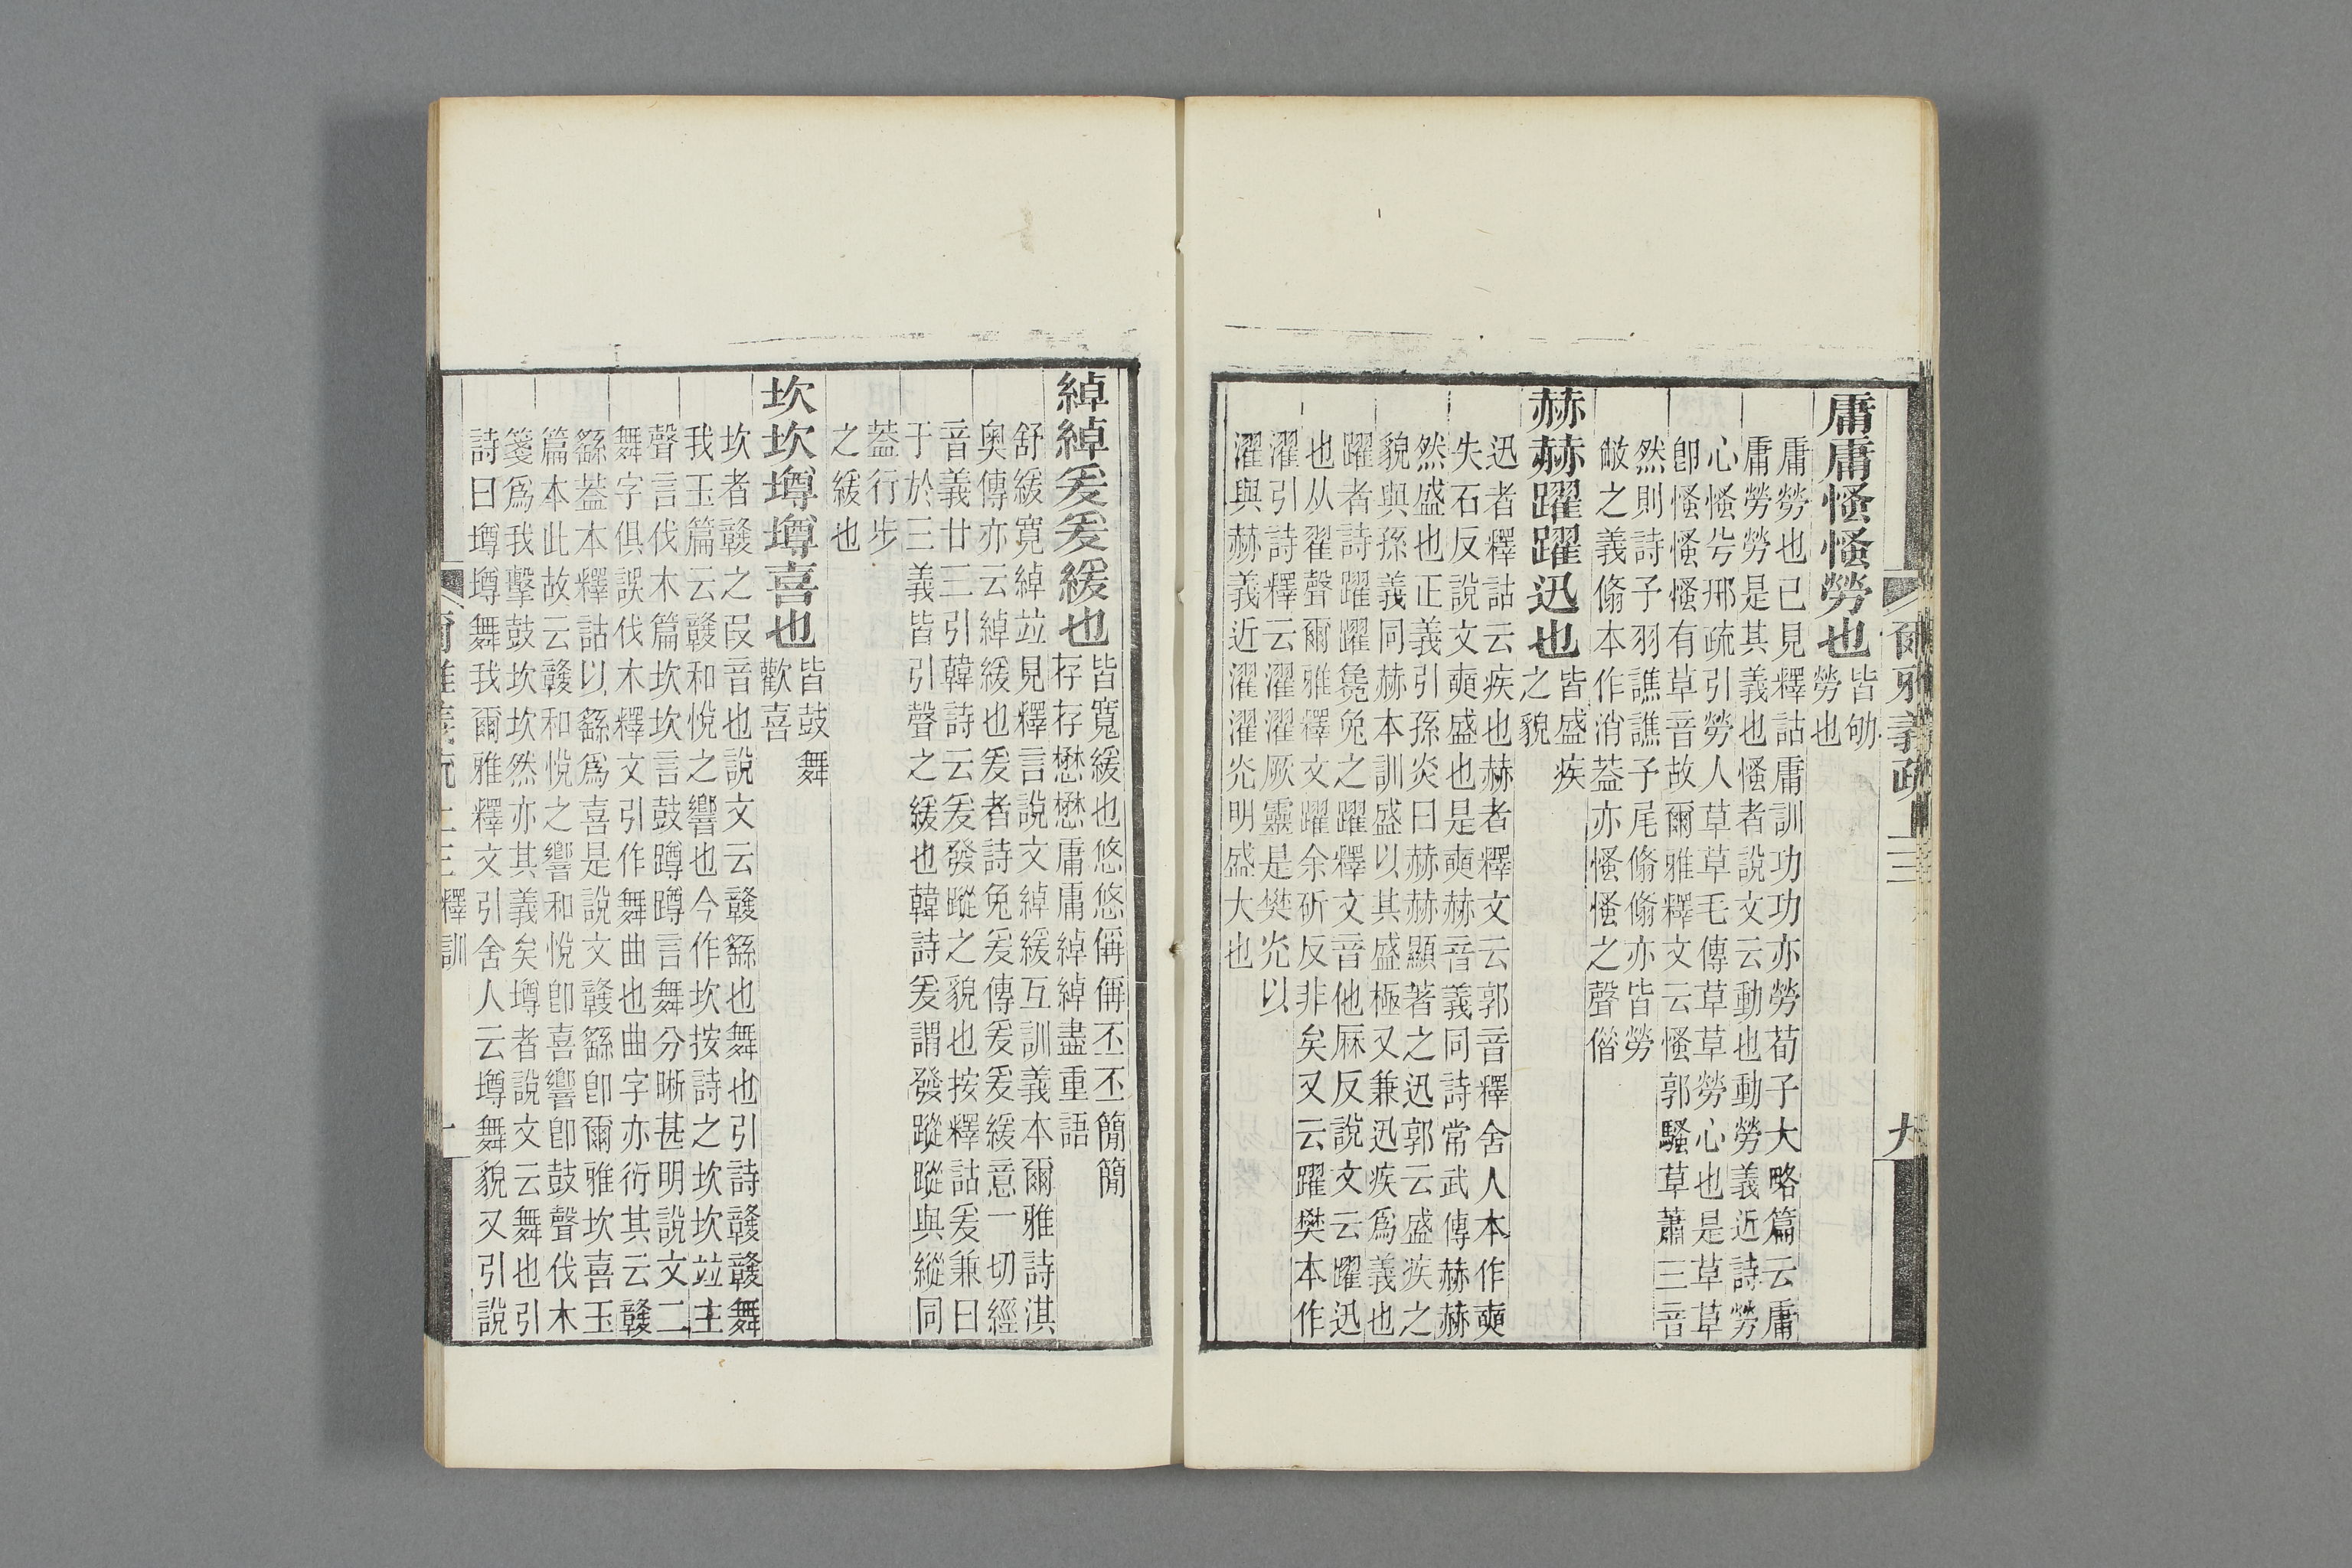 庸庸慅慅勞也皆劬
勞也
庸勞也已見釋詁庸訓功功亦勞荀子大略篇云庸
庸勞勞是其義也慅者說文云動也動勞義近詩勞
心慅兮邢疏引勞人草草毛傳草草勞心也是草草
卽慅慅慅有草音故爾雅釋文云慅郭騷草蕭三音
然則詩子羽譙譙子尾翛翛亦皆勞
敝之義翛本作消葢亦慅慅之聲偕
赫赫躍躍迅也皆盛疾
之貌
迅者釋詁云疾也赫者釋文云郭音釋舍人本作奭
失石反說文奭盛也是奭赫音義同詩常武傳赫赫
然盛也正義引孫炎曰赫赫顯著之迅郭云盛疾之
貌與孫義同赫本訓盛以其盛極又兼迅疾爲義也
躍者詩躍躍毚兔之躍釋文音他厤反說文云躍迅
也从翟聲爾雅釋文躍余斫反非矣又云躍樊本作
濯引詩釋云濯濯厥靈是樊光以
濯與赫義近濯濯光明盛大也
爾雅義疏 上三 九
綽綽爰爰緩也皆寬緩也悠悠偁偁丕丕簡簡
存存懋懋庸庸綽綽盡重語
舒緩寬綽竝見釋言說文綽緩互訓義本爾雅詩淇
奧傳亦云綽緩也爰者詩兔爰傳爰爰緩意一切經
音義廿三引韓詩云爰發蹤之貌也按釋詁爰兼曰
于於三義皆引聲之緩也韓詩爰謂發蹤蹤與縱同
葢行步
之緩也
坎坎墫墫喜也皆鼓舞
歡喜
坎者竷之叚音也說文云竷繇也舞也引詩竷竷舞
我玉篇云竷和悅之響也今作坎按詩之坎坎竝主
聲言伐木篇坎坎言鼓蹲蹲言舞分晰甚明說文二
舞字俱誤伐木釋文引作舞曲也曲字亦衍其云竷
繇葢本釋詁以繇爲喜是說文竷繇卽爾雅坎喜玉
篇本此故云竷和悅之響和悅卽喜響卽鼓聲伐木
箋爲我擊鼓坎坎然亦其義矣墫者說文云舞也引
詩曰墫墫舞我爾雅釋文引舍人云墫舞貌又引說
爾雅義疏上三釋訓